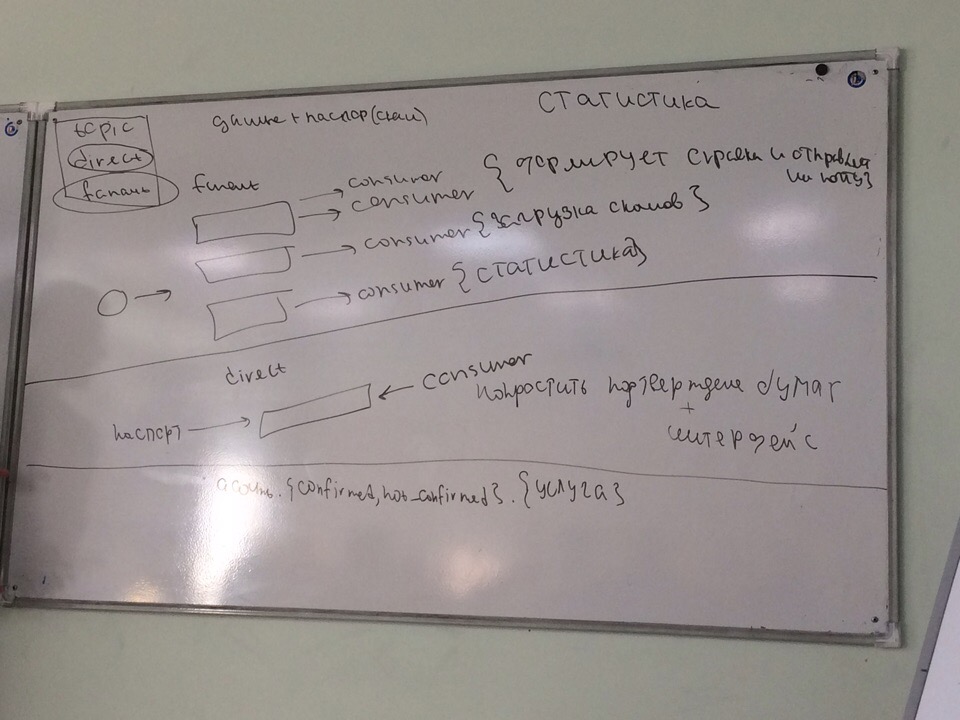 topic
direct
fanout
данные + паспор (скан)
статистика
fanout
consumer
consumer {формирует справки и отправляет
на почту}
consumer {загрузка сканов}
consumer {статистика}
direct
consumer
паспорт
подтверждение бумаг
+
интерфейс
.{confirmed, not_confirmed}.{услуга}